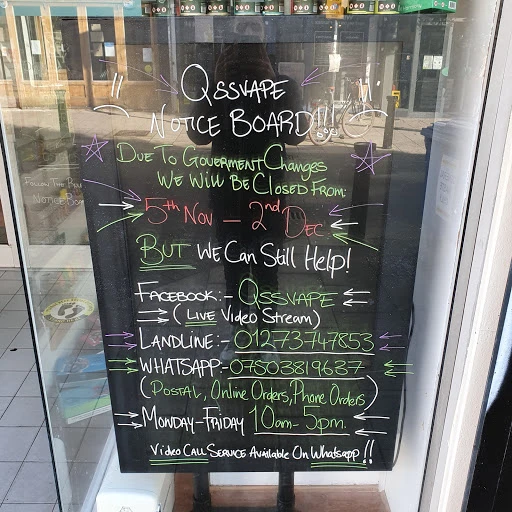 QSSVAPE
NOTICE BOARD!!!
DUE TO GOVERMENT CHANGES
WE WILL BE CLOSED FROM:
5th NOV - 2nd DEC
BUT WE CAN STILL HELP!
FACEBOOK:- QSSVAPE
(LIVE VIDEO STREAM)
LANDLINE:- 01273747853
WHATSAPP:- 07503819637
(POSTAL, ONLINE ORDERS, PHONE ORDERS)
MONDAY-FRIDAY 10am-5pm.
VIDEO CALL SERVICE AVAILABLE ON WHATSAPP!!
FOLLOW THE
NOTICE BOARD